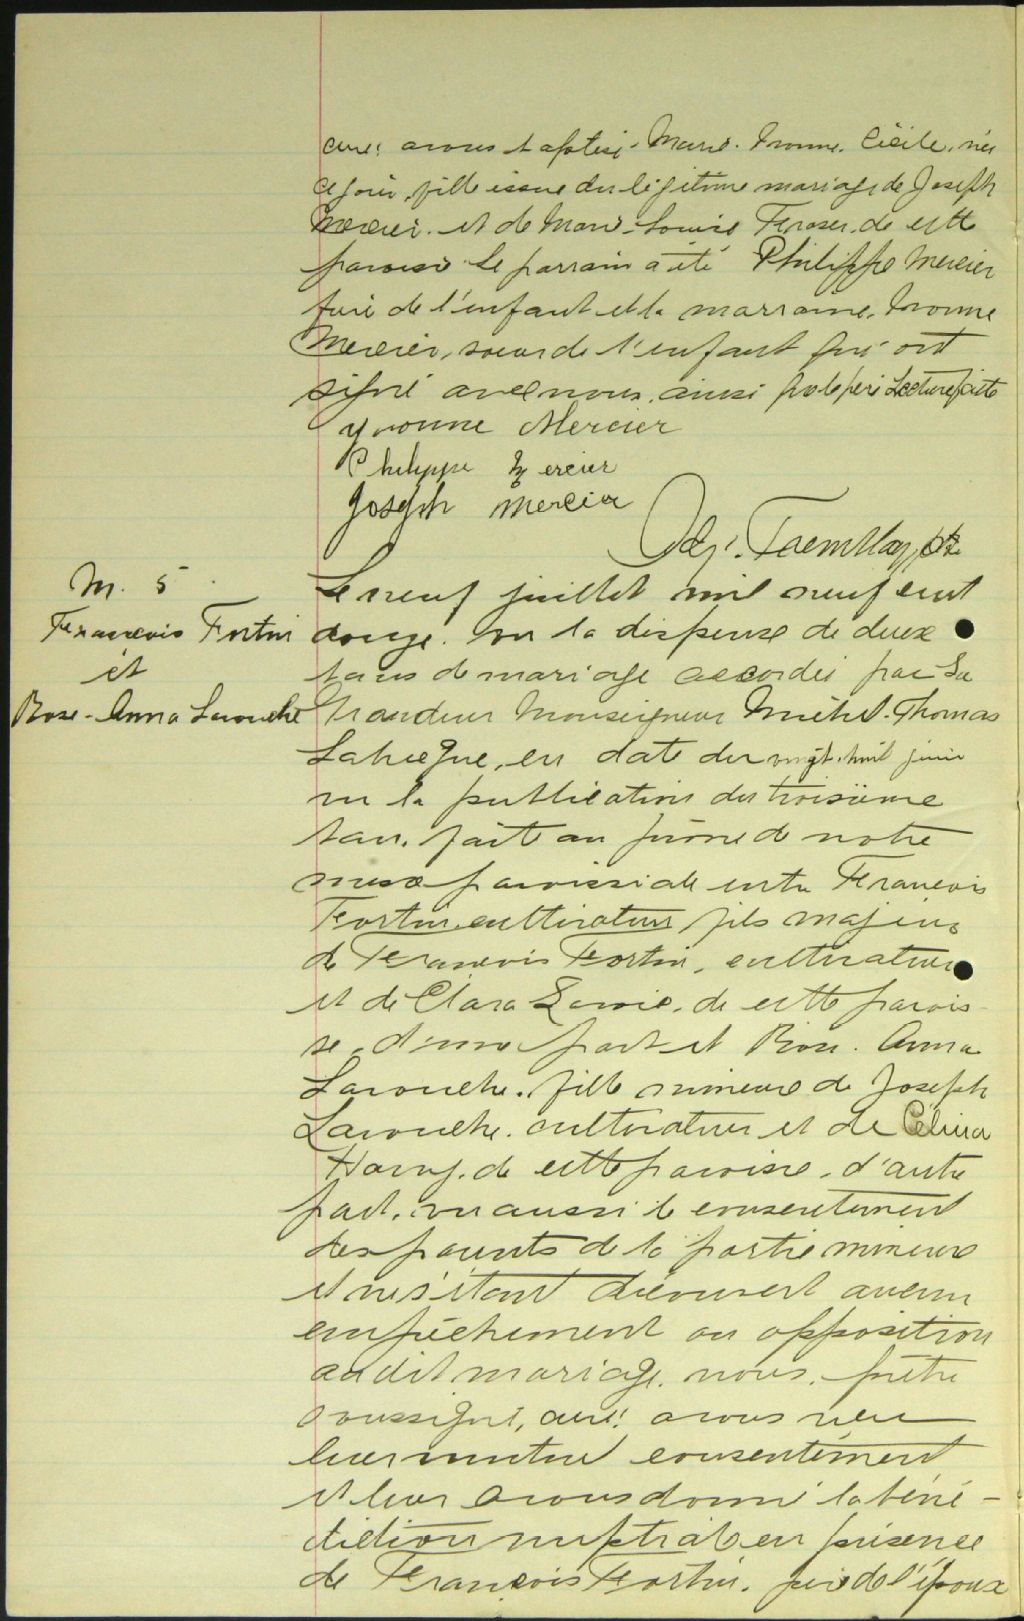 curé avons baptisé Marie. Yvonne. Cécile, née
ce jour, fille issue du légitime mariage de Joseph
Mercier. et de Marie-Louise Fraser. de cette
paroisse Le parrain a été Philippe Mercier
frère de l'enfant et la marraine, Yvonne
Mercier, soeur de l'enfant qui ont
signé avec nous. ainsi que le père Lecture faite
Yvonne Mercier
Philippe Mercier
Joseph Mercier
Tremblay, ptr
M. 5
François Fortin
et
Rose-Anna Larouche
Le neuf juillet mil neuf cent
douze. vu la dispense de deux
bans de mariage accordée par Sa
Grandeur Monseigneur Michel-Thomas
Labrecque, en date du vingt-huit juin
vu la publication du troisième
ban. fait au prône de notre
messe paroissiale entre François
Fortin. cultivateur, fils majeur
de François Fortin, cultivateur
et de Clara Savoie. de cette parois-
se, d'une part et Rose. Anna
Larouche. fille mineure de Joseph
Larouche. cultivateur et de Célina
Harvey. de cette paroisse, d'autre
part. vu aussi le consentement
des parents de la partie mineure
et ne s'étant découvert aucun
empêchement ou opposition
au dit mariage. nous, prêtre
soussigné, curé avons reçu
leur mutuel consentement
et leur avons donné la béné-
diction nuptiale en présence
de François Fortin. père de l'époux